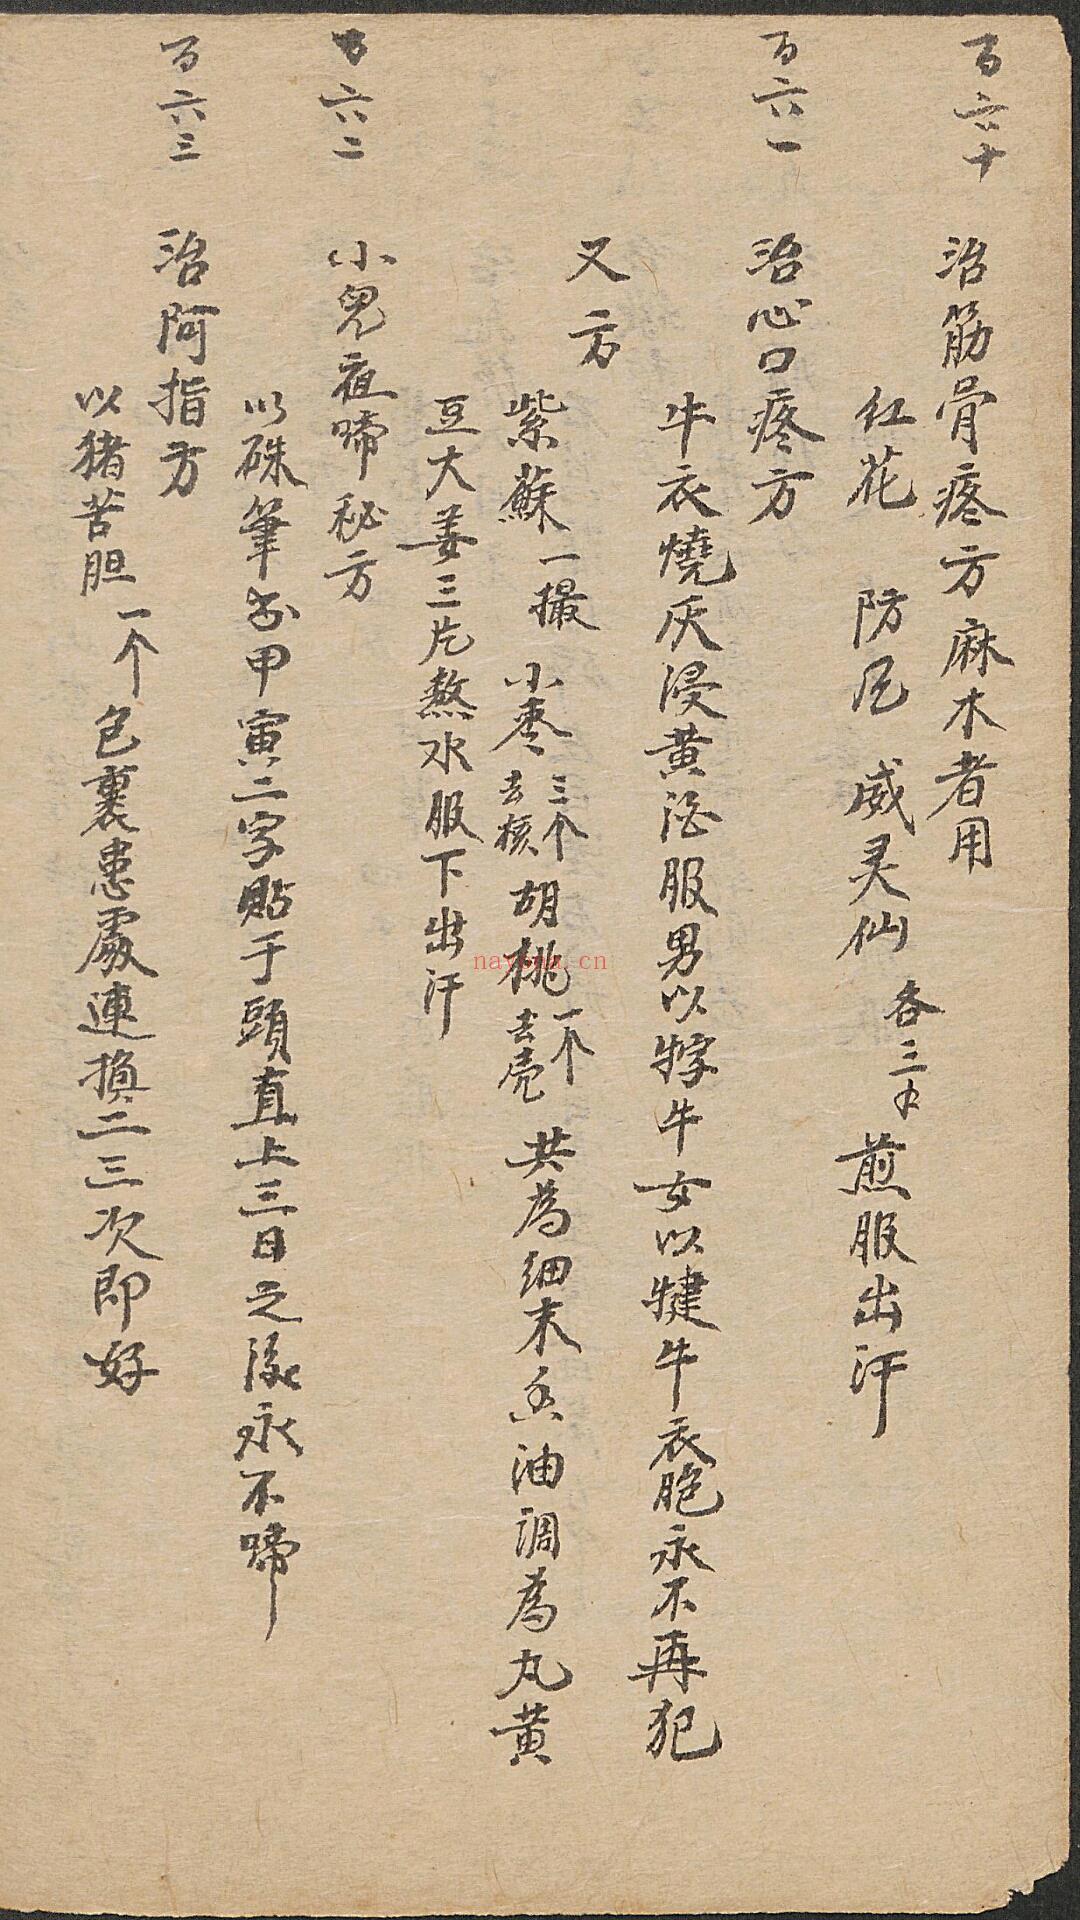 百六十 治筋骨疼方麻木者用
红花 防风 威灵仙 各三才 煎服出汗
百六一 治心口疼方
牛衣燒灰浸黄酒服男以牸牛女以犍牛衣胞永不再犯
又方
紫蘇一撮 小棗三个去核 胡桃一个去壳 共為细末香油調為丸黄
豆大姜三片熬水服下出汗
百六二 小兒夜啼秘方
以硃筆书甲寅二字貼于頭直上三日之後永不啼
百六三 治阿指方
以猪苦胆一个包裹患處連換二三次即好
nayona.cn